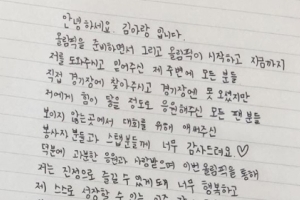 안녕하세요 김아랑 입니다.
올림픽을 준비하면서 그리고 올림픽이 시작하고 지금까지
저를 도와주시고 믿어주신 제 주변에 모든 분들
직접 경기장에 찾아주시고 경기장엔 못 오셨지만
저에게 힘이 닿을 정도로 응원해주신 모든 팬 분들
보이지 않는곳에서 대회를 위해 애써주신
봉사자 분들과 스탭분들께 너무 감사드려요♡
덕분에 과분한 응원과 사랑받으며 이번 올림픽을 통해
저는 진정으로 즐길 수 있게되며 너무 행복하고
제 스스로 성장할 수 있는